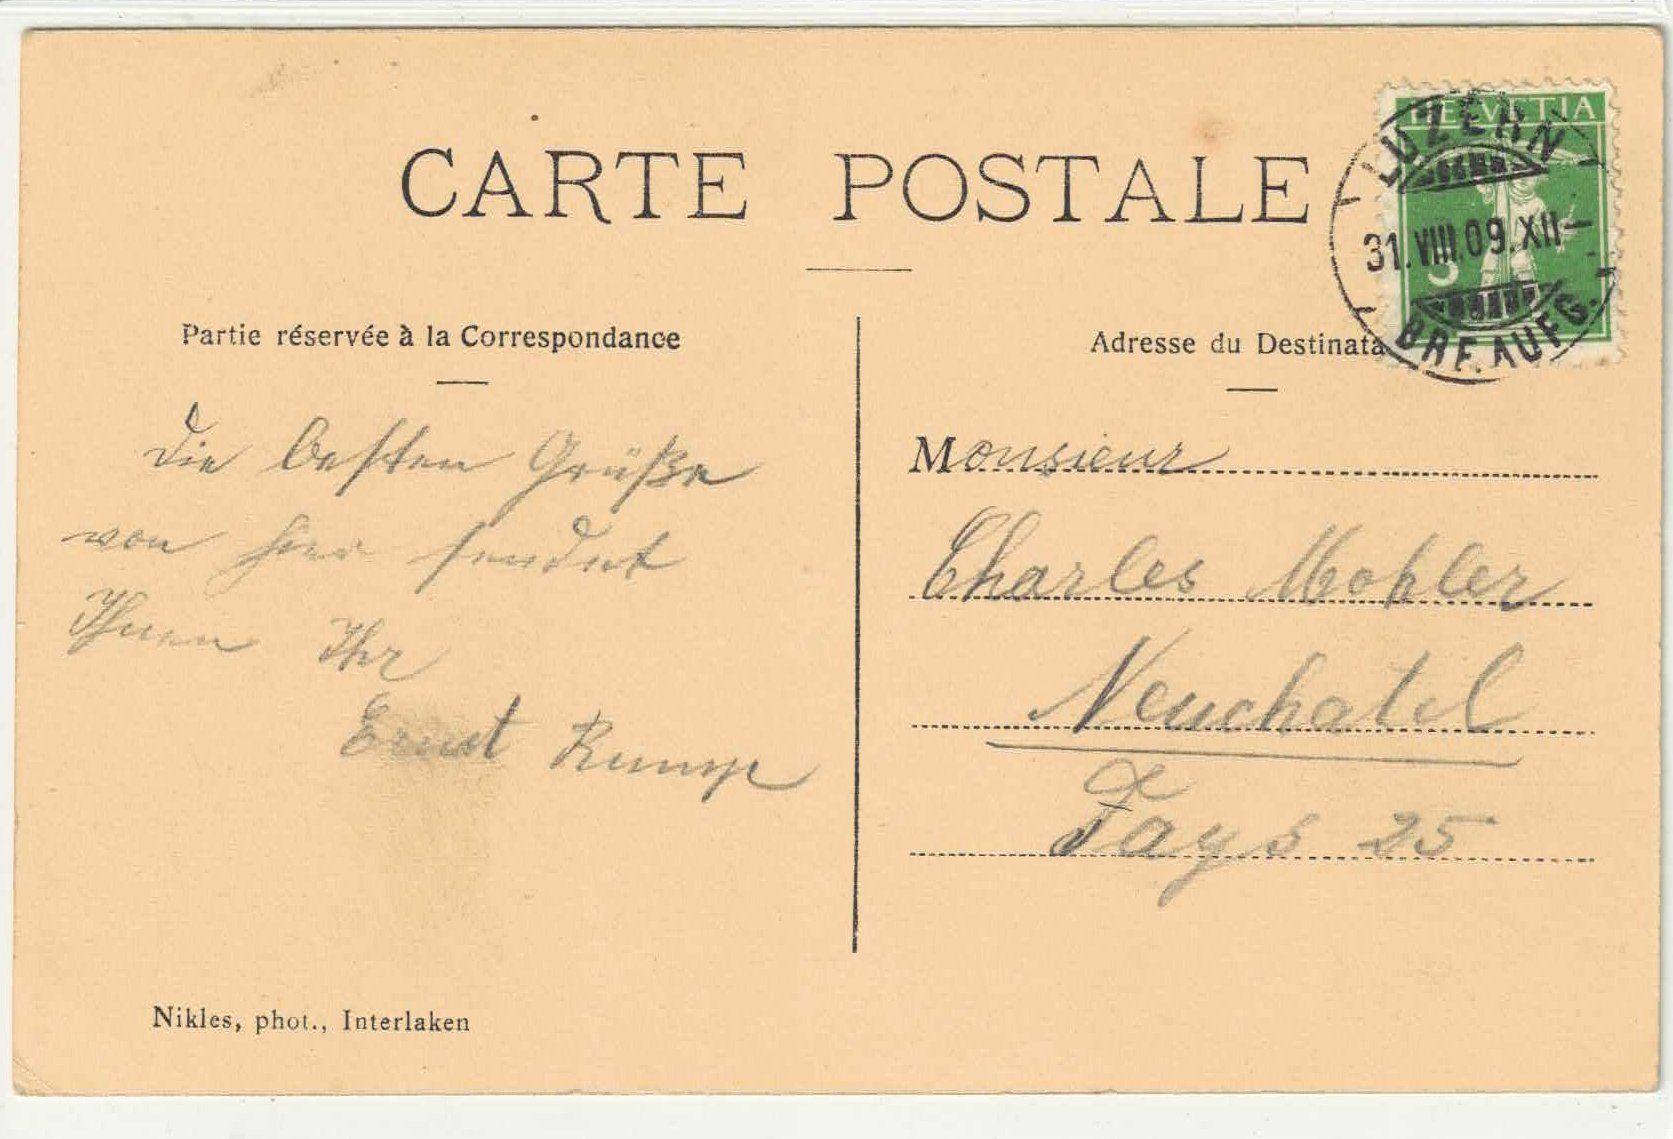 CARTE POSTALE
HELVETIA
LUZERN
31.VIII.09.XII-
BRF. AUFG.
5
Partie réservée à la Correspondance
Die besten Grüße
von hier sendet
Ihnen Ihr
Ernst Rump
Nikles, phot., Interlaken
Adresse du Destinata
Monsieur
Charles Mohler
Neuchatel
Fays 25